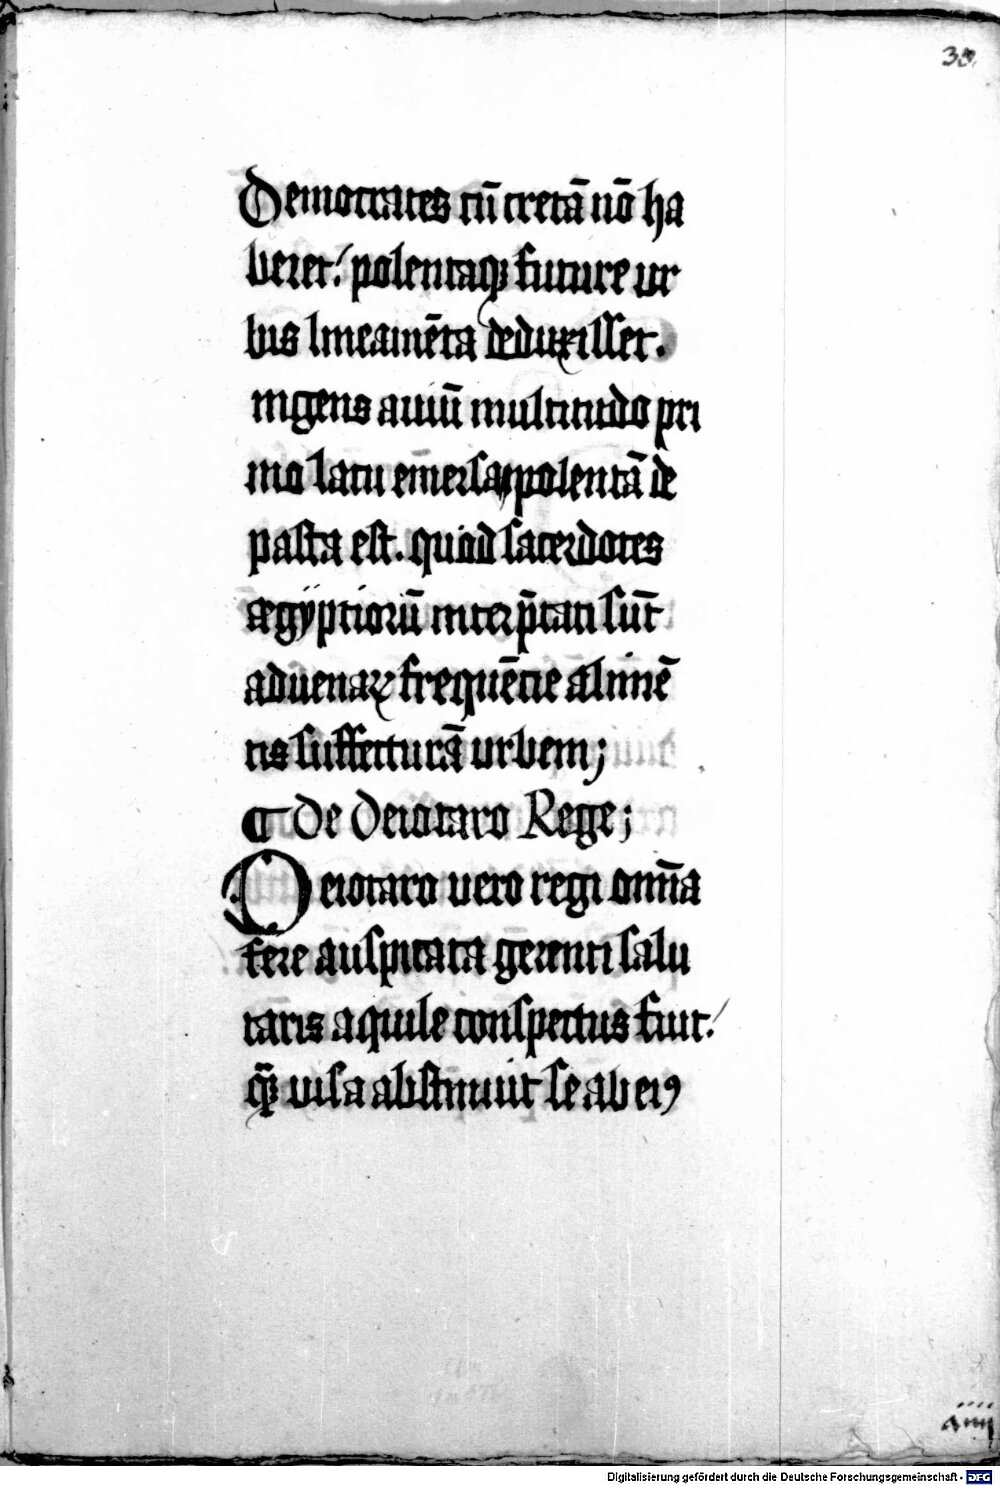 30
Democrates cū cretā nō ha
beret: polentaqꝫ future ur
bis lineamēta deduxisset.
ingens auiū multitudo pri
mo lacu em̄ersa polentā de
pasta est. quod sacerdotes
ægyptiorū interp̄tati sūt
aduenaꝝ frequēcie alimē
tis suffecturā urbem;
¶ De Deiotaro Rege;
Deiotaro uero regi omīa
fere auspicata gerenti salu
tāris aquile conspectus fuit:
q̄ꝫ uisa abstinuit se ab eiꝰ
aiiij
Digitalisierung gefördert durch die Deutsche Forschungsgemeinschaft - DFG